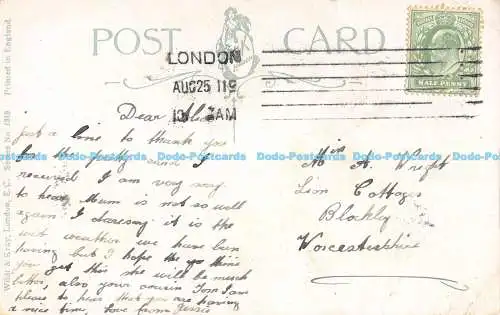 POST CARD
LONDON
AUG25 11
AM
HALF PENNY
Wildt & Kray, London, E.C. Series No. Printed in England.
Dear
just a line to thank you
for the pretty card I
received. I am very sorry
to hear Mum is not so well
again I daresay it is the
wet weather we have been
having but I hope by the time
you get this she will be much
better, also your cousin Tom I am
please to hear that you are having
a nice time, love from Jessie
Miss A. Wright
Lion Cottage
Blockley
Worcestershire
Dodo-Postcards Dodo-Postcards Dodo-Postcards Dodo-Postcards